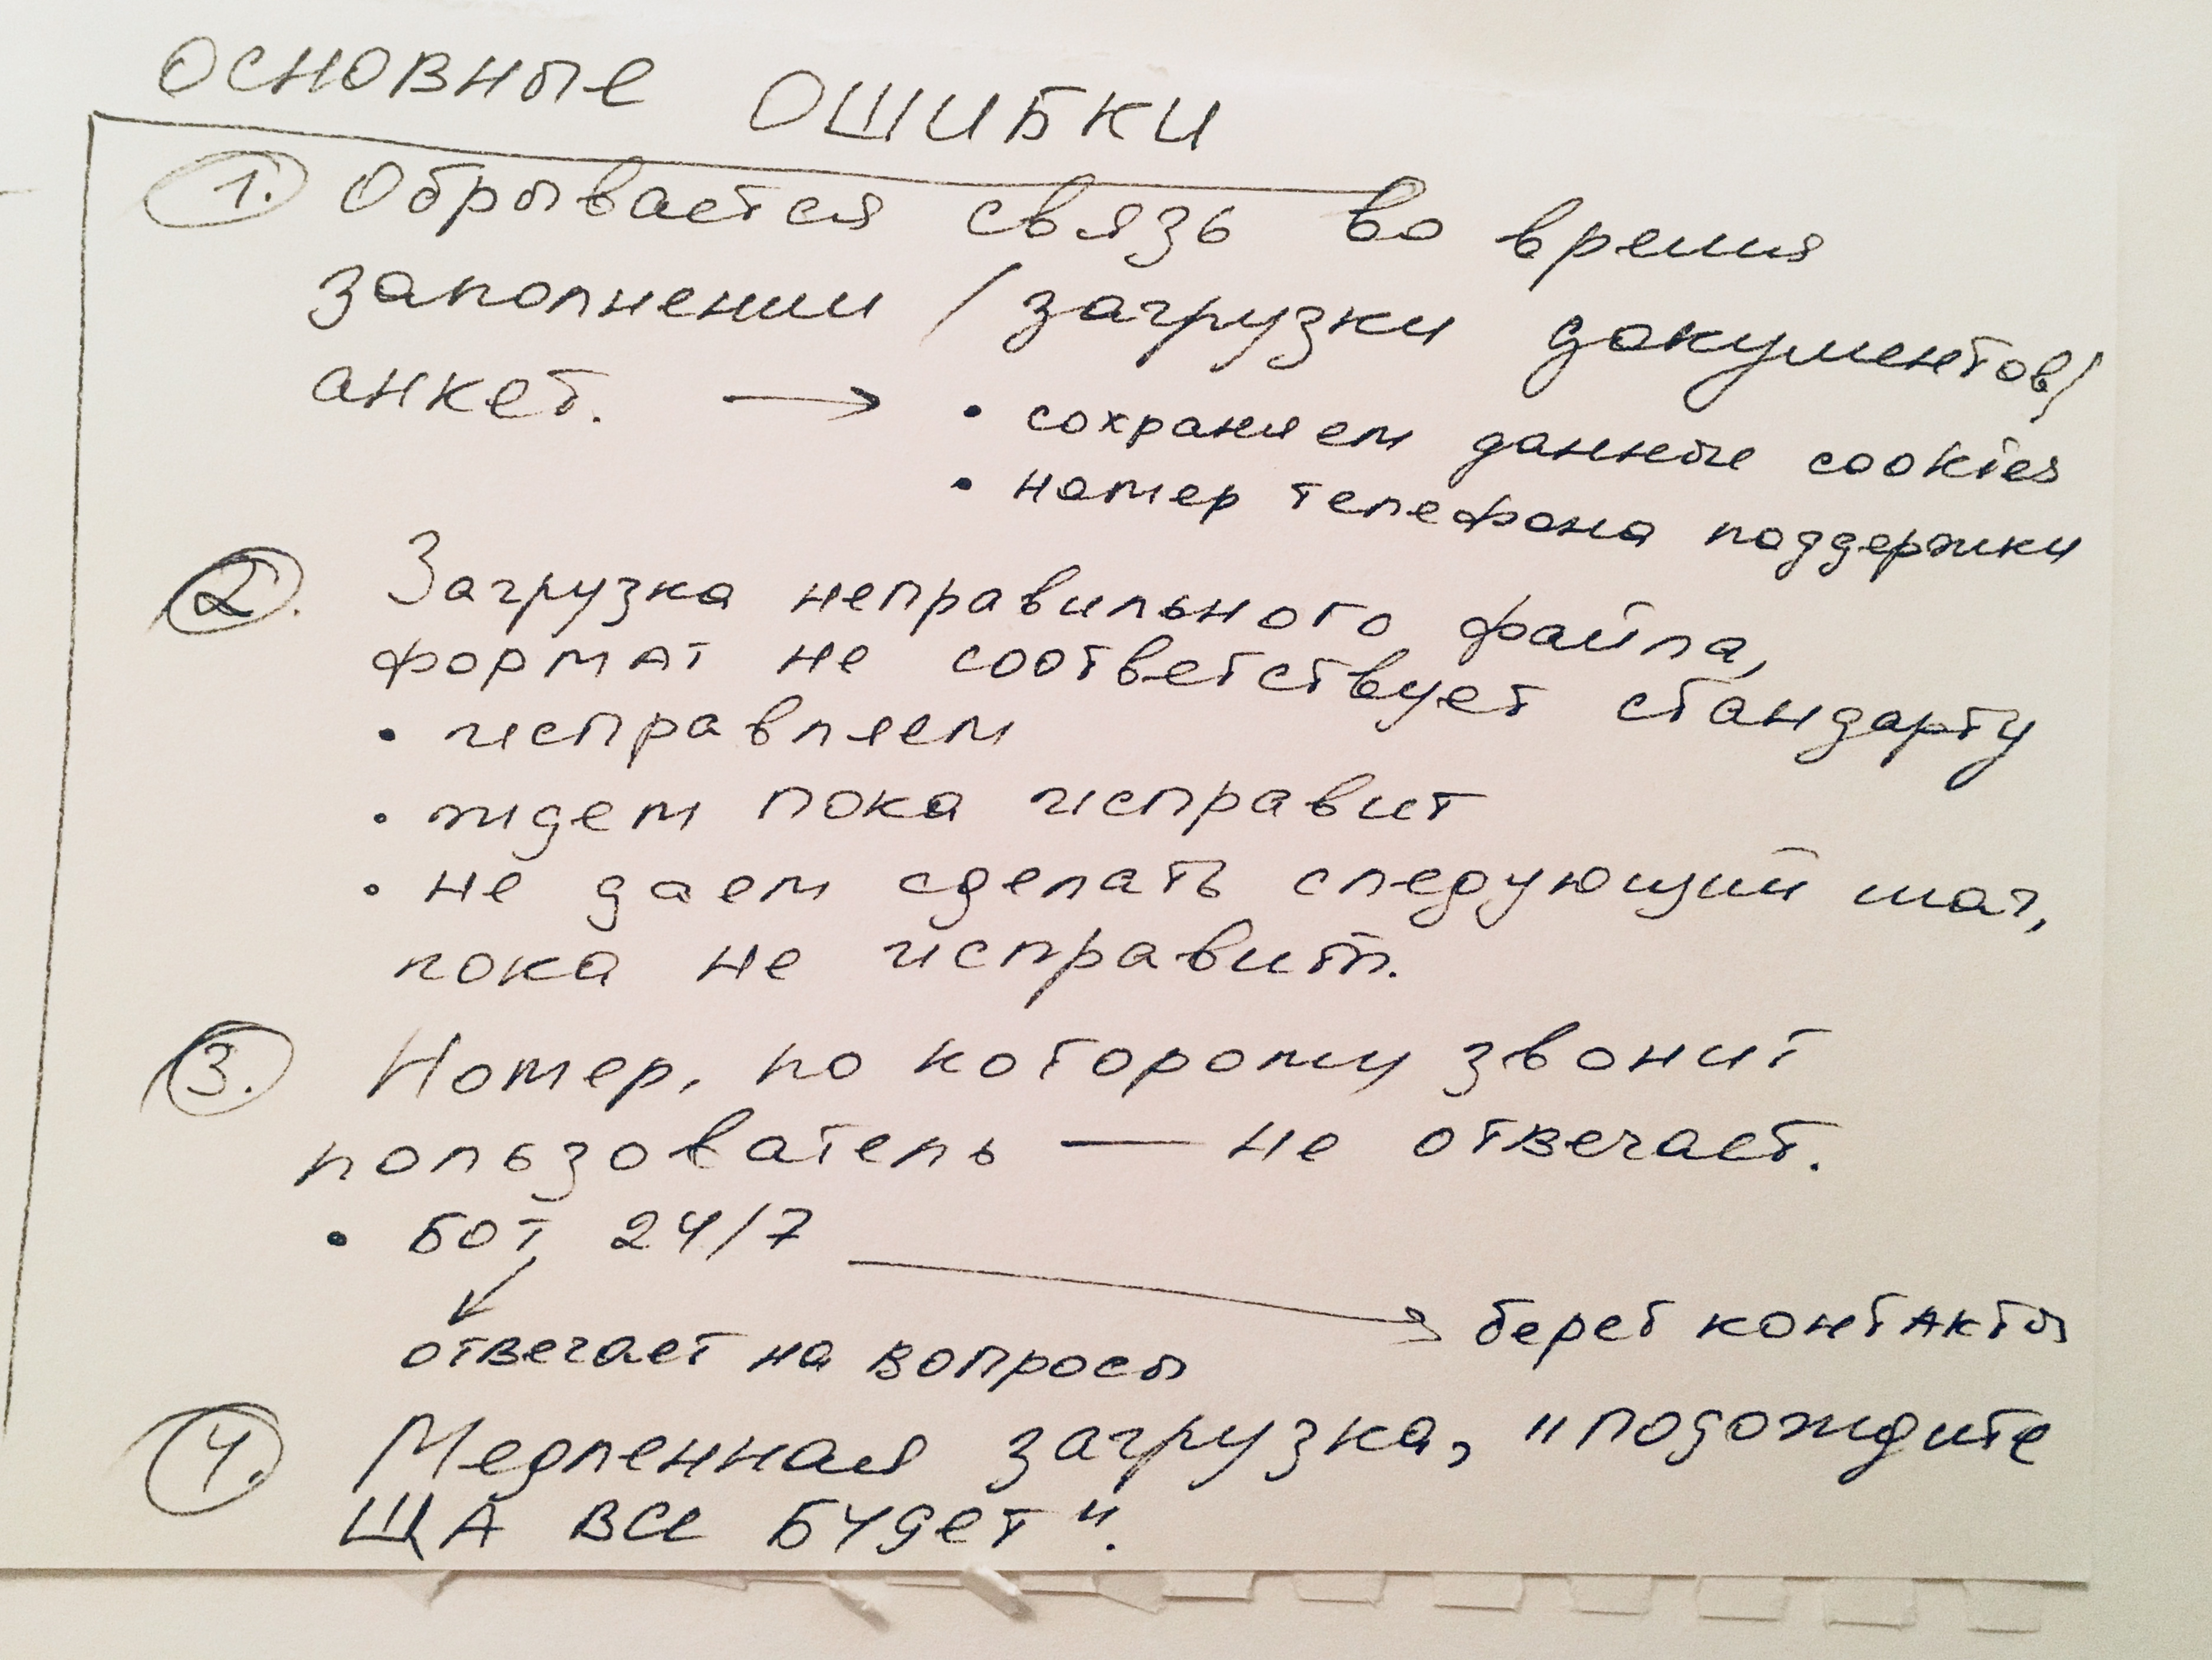 ОСНОВНЫЕ ОШИБКИ
1. Обрывается связь во время
заполнении / загрузки документов /
анкет. → • сохраняем данные cookies
• номер телефона поддержки
2. Загрузка неправильного файла,
формат не соответствует стандарту
• исправляем
• ждем пока исправит
• не даем сделать следующий шаг,
пока не исправит.
3. Номер, по которому звонит
пользователь — не отвечает.
• бот 24/7 → берет контакты
отвечает на вопросы
4. Медленная загрузка, "подождите
ЩА ВСЕ БУДЕТ".